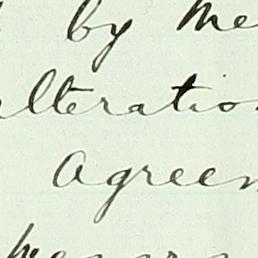 by me
lteratio
Agreen